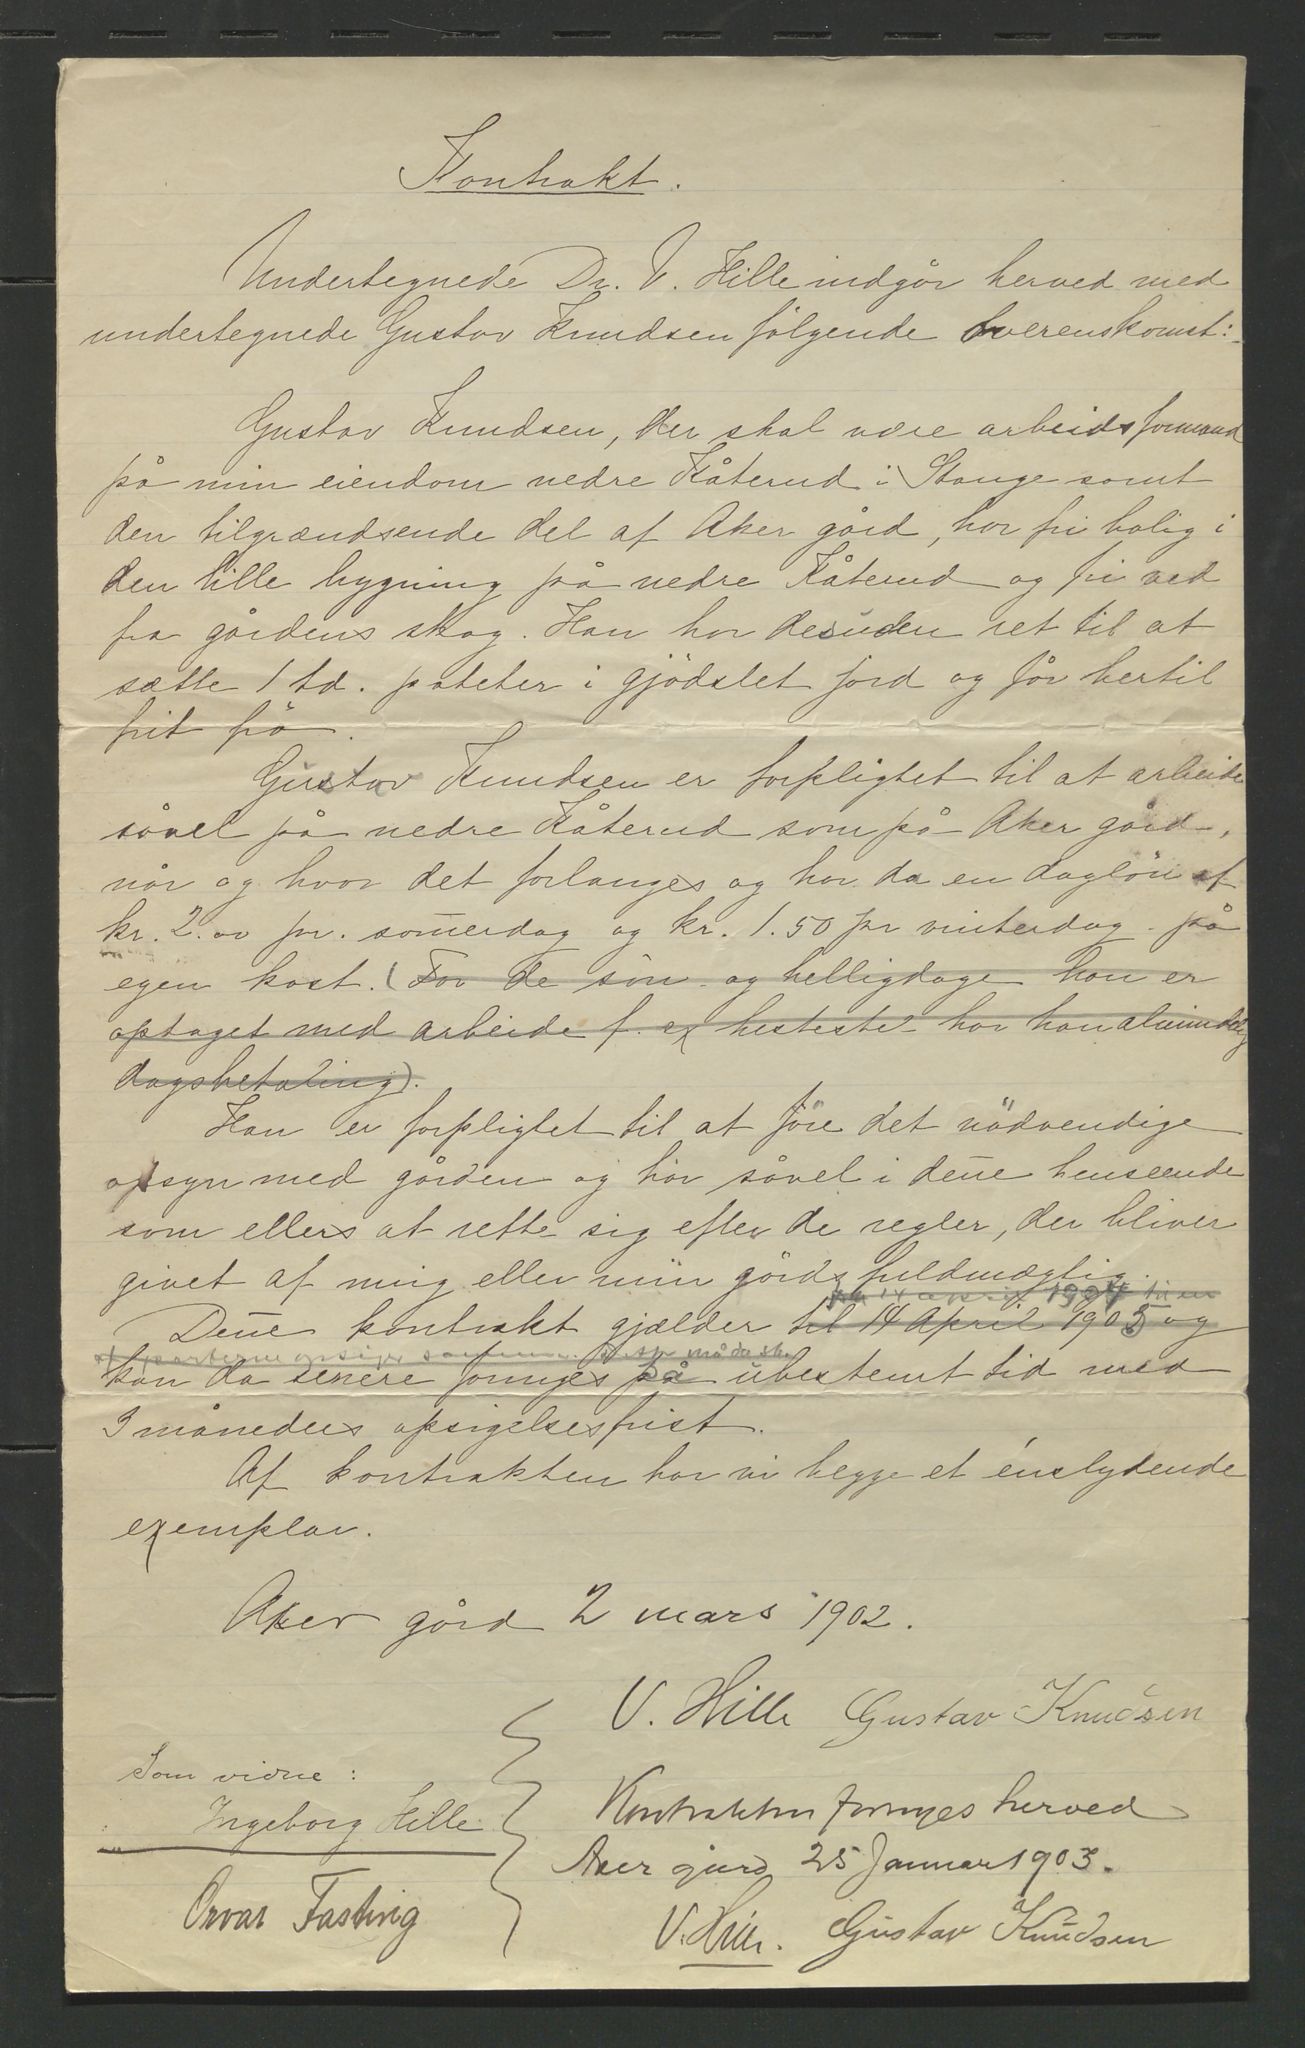 Kontrakt.
Undertegnede Dr. V. Hille indgår herved med
undertegnede Gustav Knudsen følgende overenskomst:
Gustav Knudsen, der skal være arbeidsformand
på min eiendom nedre Kåterud i Stange samt
den tilgrændsende del af Aker gård, har fri bolig i
den lille bygning på nedre Kåterud og fri ved
fra gårdens skog. Han har desuden ret til at
sætte 1 td. poteter i gjödslet jord og får hertil
frit frö.
Gustav Knudsen er forpligtet til at arbeide
såvel på nedre Kåterud som på Aker gård,
når og hvor det forlanges og har da en daglön af
kr. 2.00 pr. som̄erdag og kr. 1.50 pr vinterdag på
egen kost. (For de søn- og helligdage han er
optaget med arbeide f. ex hestestel har han almindelig
dagsbetaling).
Han er forpligtet til at före det nödvendige
opsyn med gården og har såvel i den̄e henseende
som ellers at rette sig efter de regler, der bliver
givet af mig eller min gårdsfuldmægtig.
14 april 1904
Den̄e kontrakt gjælder til 14 April 1903 og
af parterne opsiger
kan da senere fornyes på ubestemt tid med
3 måneders opsigelsesfrist.
Af kontrakten har vi begge et énslydende
exemplar.
Aker gård 2 mars 1902.
V. Hille Gustav Knudsen
Som vidne:
Ingeborg Hille.
Orvar Fasting
Kontrakten fornyes herved
Aker gård 25 Januar 1903.
V. Hille. Gustav Knudsen